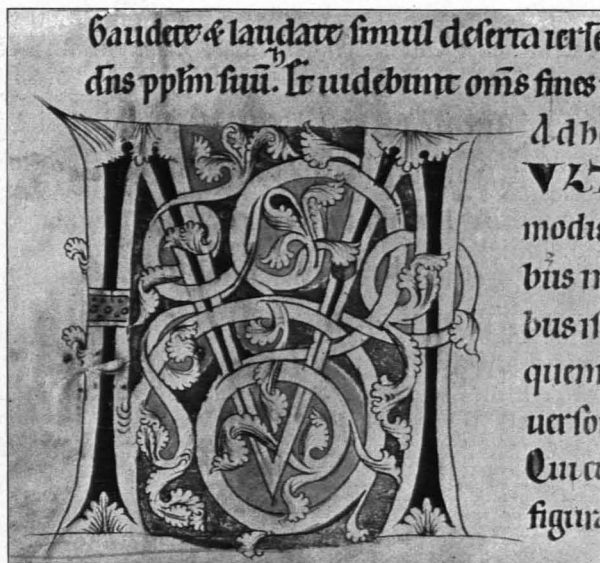 Gaudete & laudate simul deserta
dn̄s pplm̄ suū. Et uidebunt om̄s fines
Ad h
M
VLT
modi
bus
bus
quem
uerso
Qui
figura